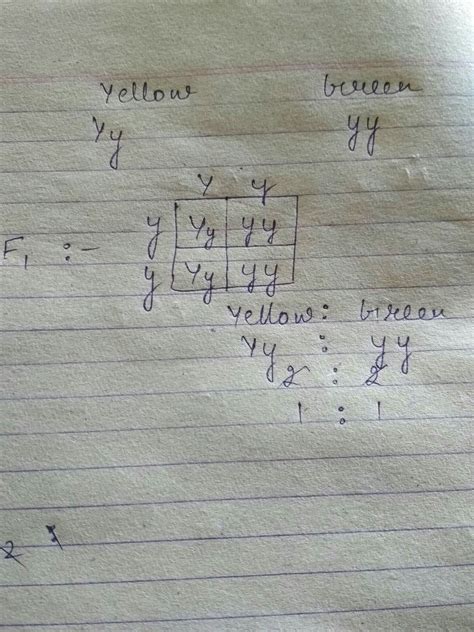 Yellow Green
Yy yy
Y y
F1 :- y Yy yy
y Yy yy
Yellow : Green
Yy : yy
2 : 2
1 : 1
2